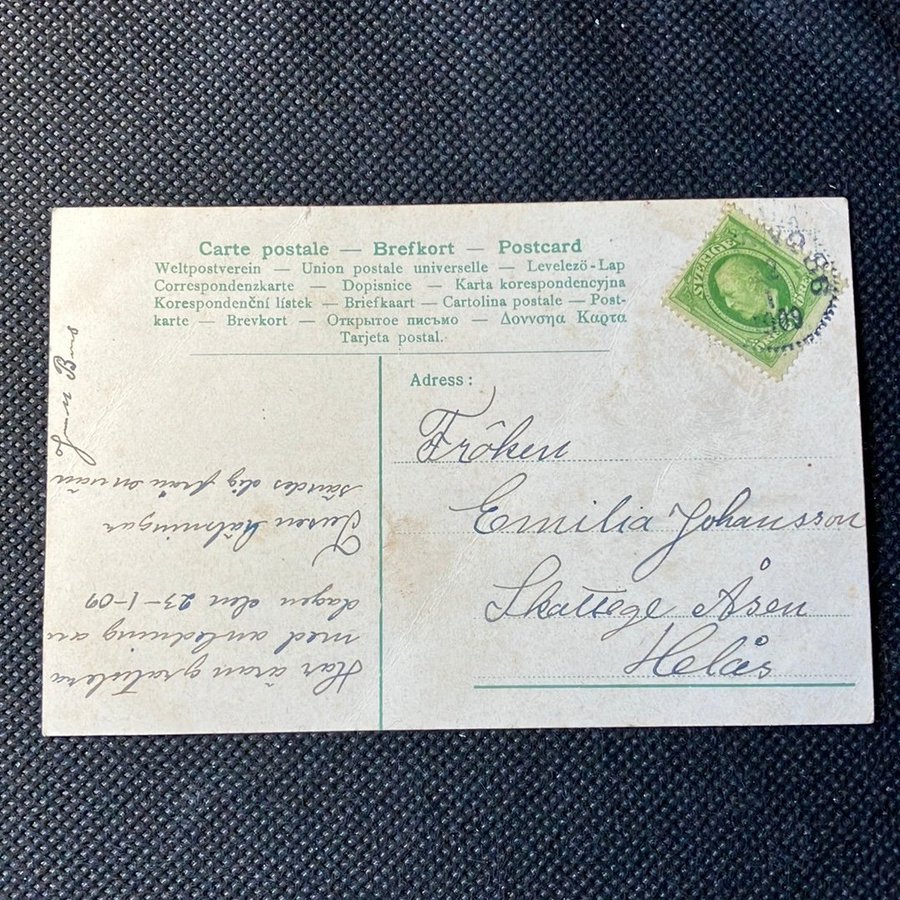 Carte postale — Brefkort — Postcard
Weltpostverein — Union postale universelle — Levelezö-Lap
Correspondenzkarte — Dopisnice — Karta korespondencyjna
Korespondenční lístek — Briefkaart — Cartolina postale — Post-
karte — Brevkort — Открытое письмо — Δοννσηα Καρτα
Tarjeta postal.
SVERIGE
Adress:
Fröken
Emilia Johansson
Skattege Åsen
Helås
Har äran gratulera
med anledning av
dagen den 23-1-09
Tusen hälsningar
sändes dig från en vän